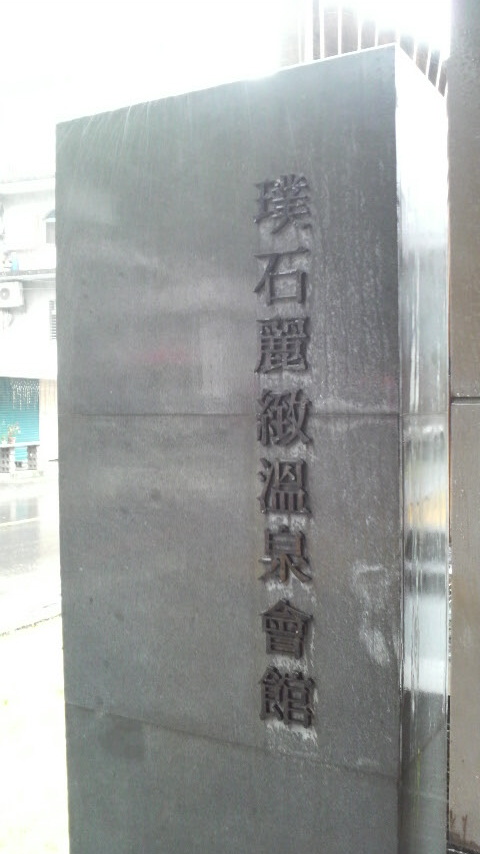 璞石麗緻溫泉會館